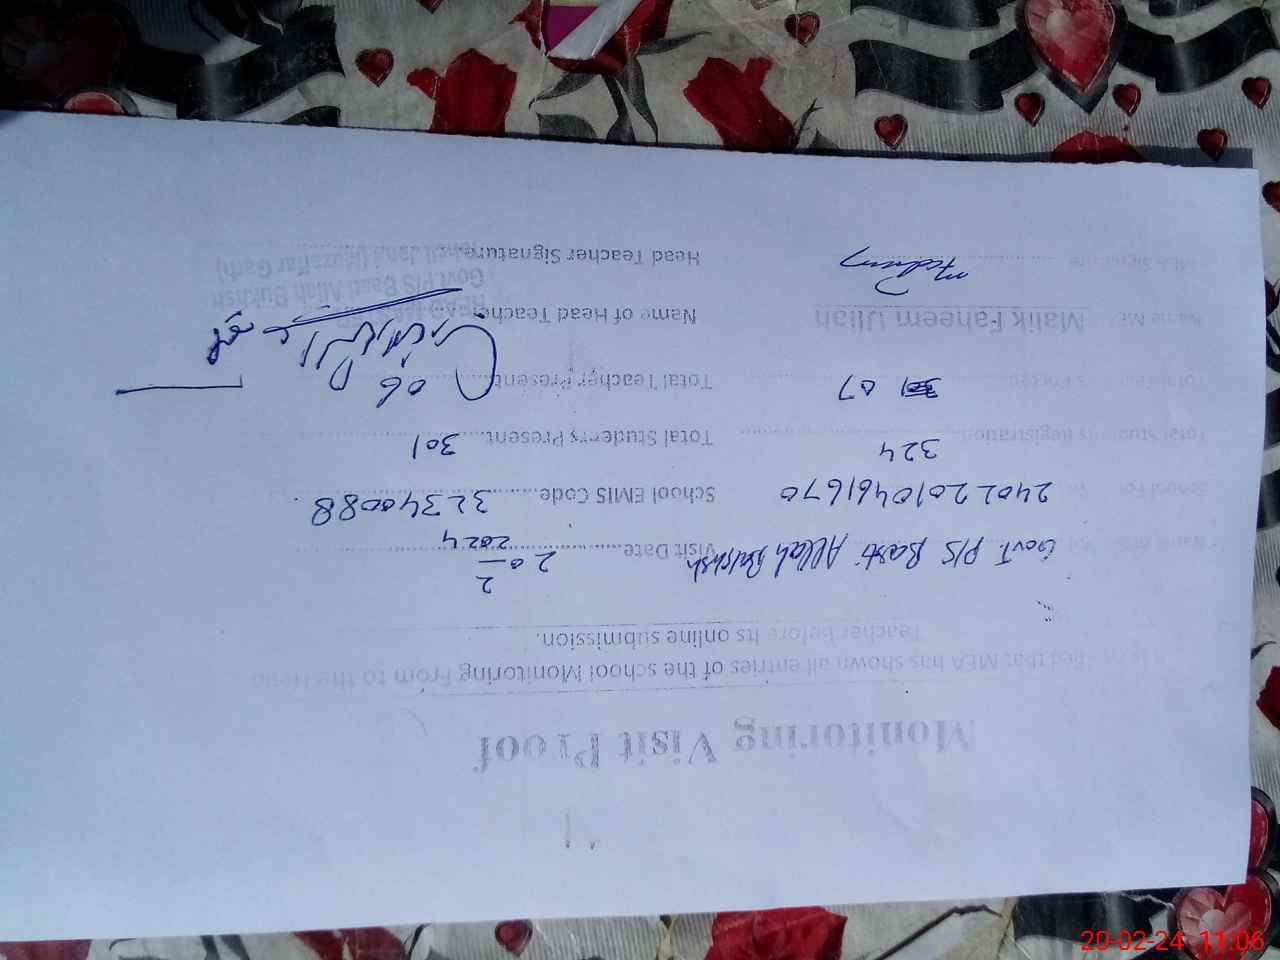 Monitoring Visit Proof
that MEA has shown all entries of the school Monitoring From to the Head
Teacher before its online submission.
Govt P/S Basti Allah Bakhsh Visit Date 20/2/2024
2402201046 School EMIS Code 32340088
Total Students Registration 324 Total Students Present 301
07 Total Teacher Present 06
Name ME Malik Faheem Ullah Name of Head Teacher
MEA Signature Faheem Head Teacher Signature
HEAD
Govt P/S Basti Allah Bukhsh
(Muzaffar Garh)
20-02-24 11:06